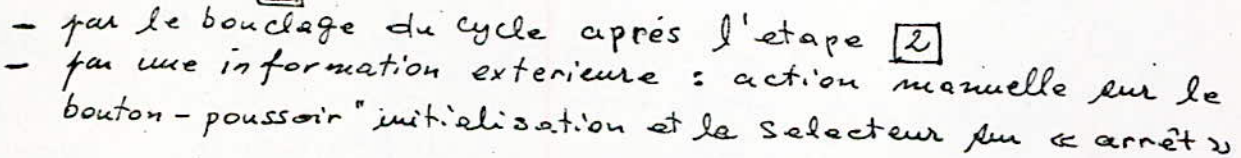 - par le bouclage du cycle aprés l'etape 2
- par une information exterieure : action manuelle sur le
bouton-poussoir "initialisation et le selecteur sur « arrêt »